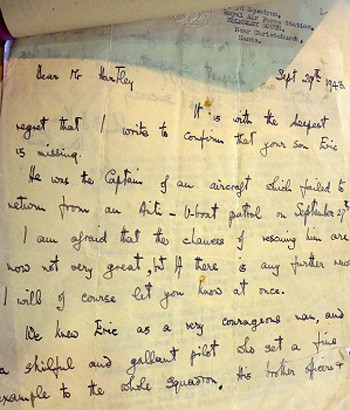 58 Squadron,
Royal Air Force Station,
HOLMSLEY SOUTH,
Near Christchurch,
Hants.
Dear Mr Hartley
Sept 29th 1943.
It is with the deepest
regret that I write to confirm that your son Eric
is missing.
He was the Captain of an aircraft which failed to
return from an Anti-U-boat patrol on September 27th
I am afraid that the chances of rescuing him are
now not very great, but if there is any further news
I will of course let you know at once.
We knew Eric as a very courageous man, and
a skilful and gallant pilot who set a fine
example to the whole squadron. His brother officers &